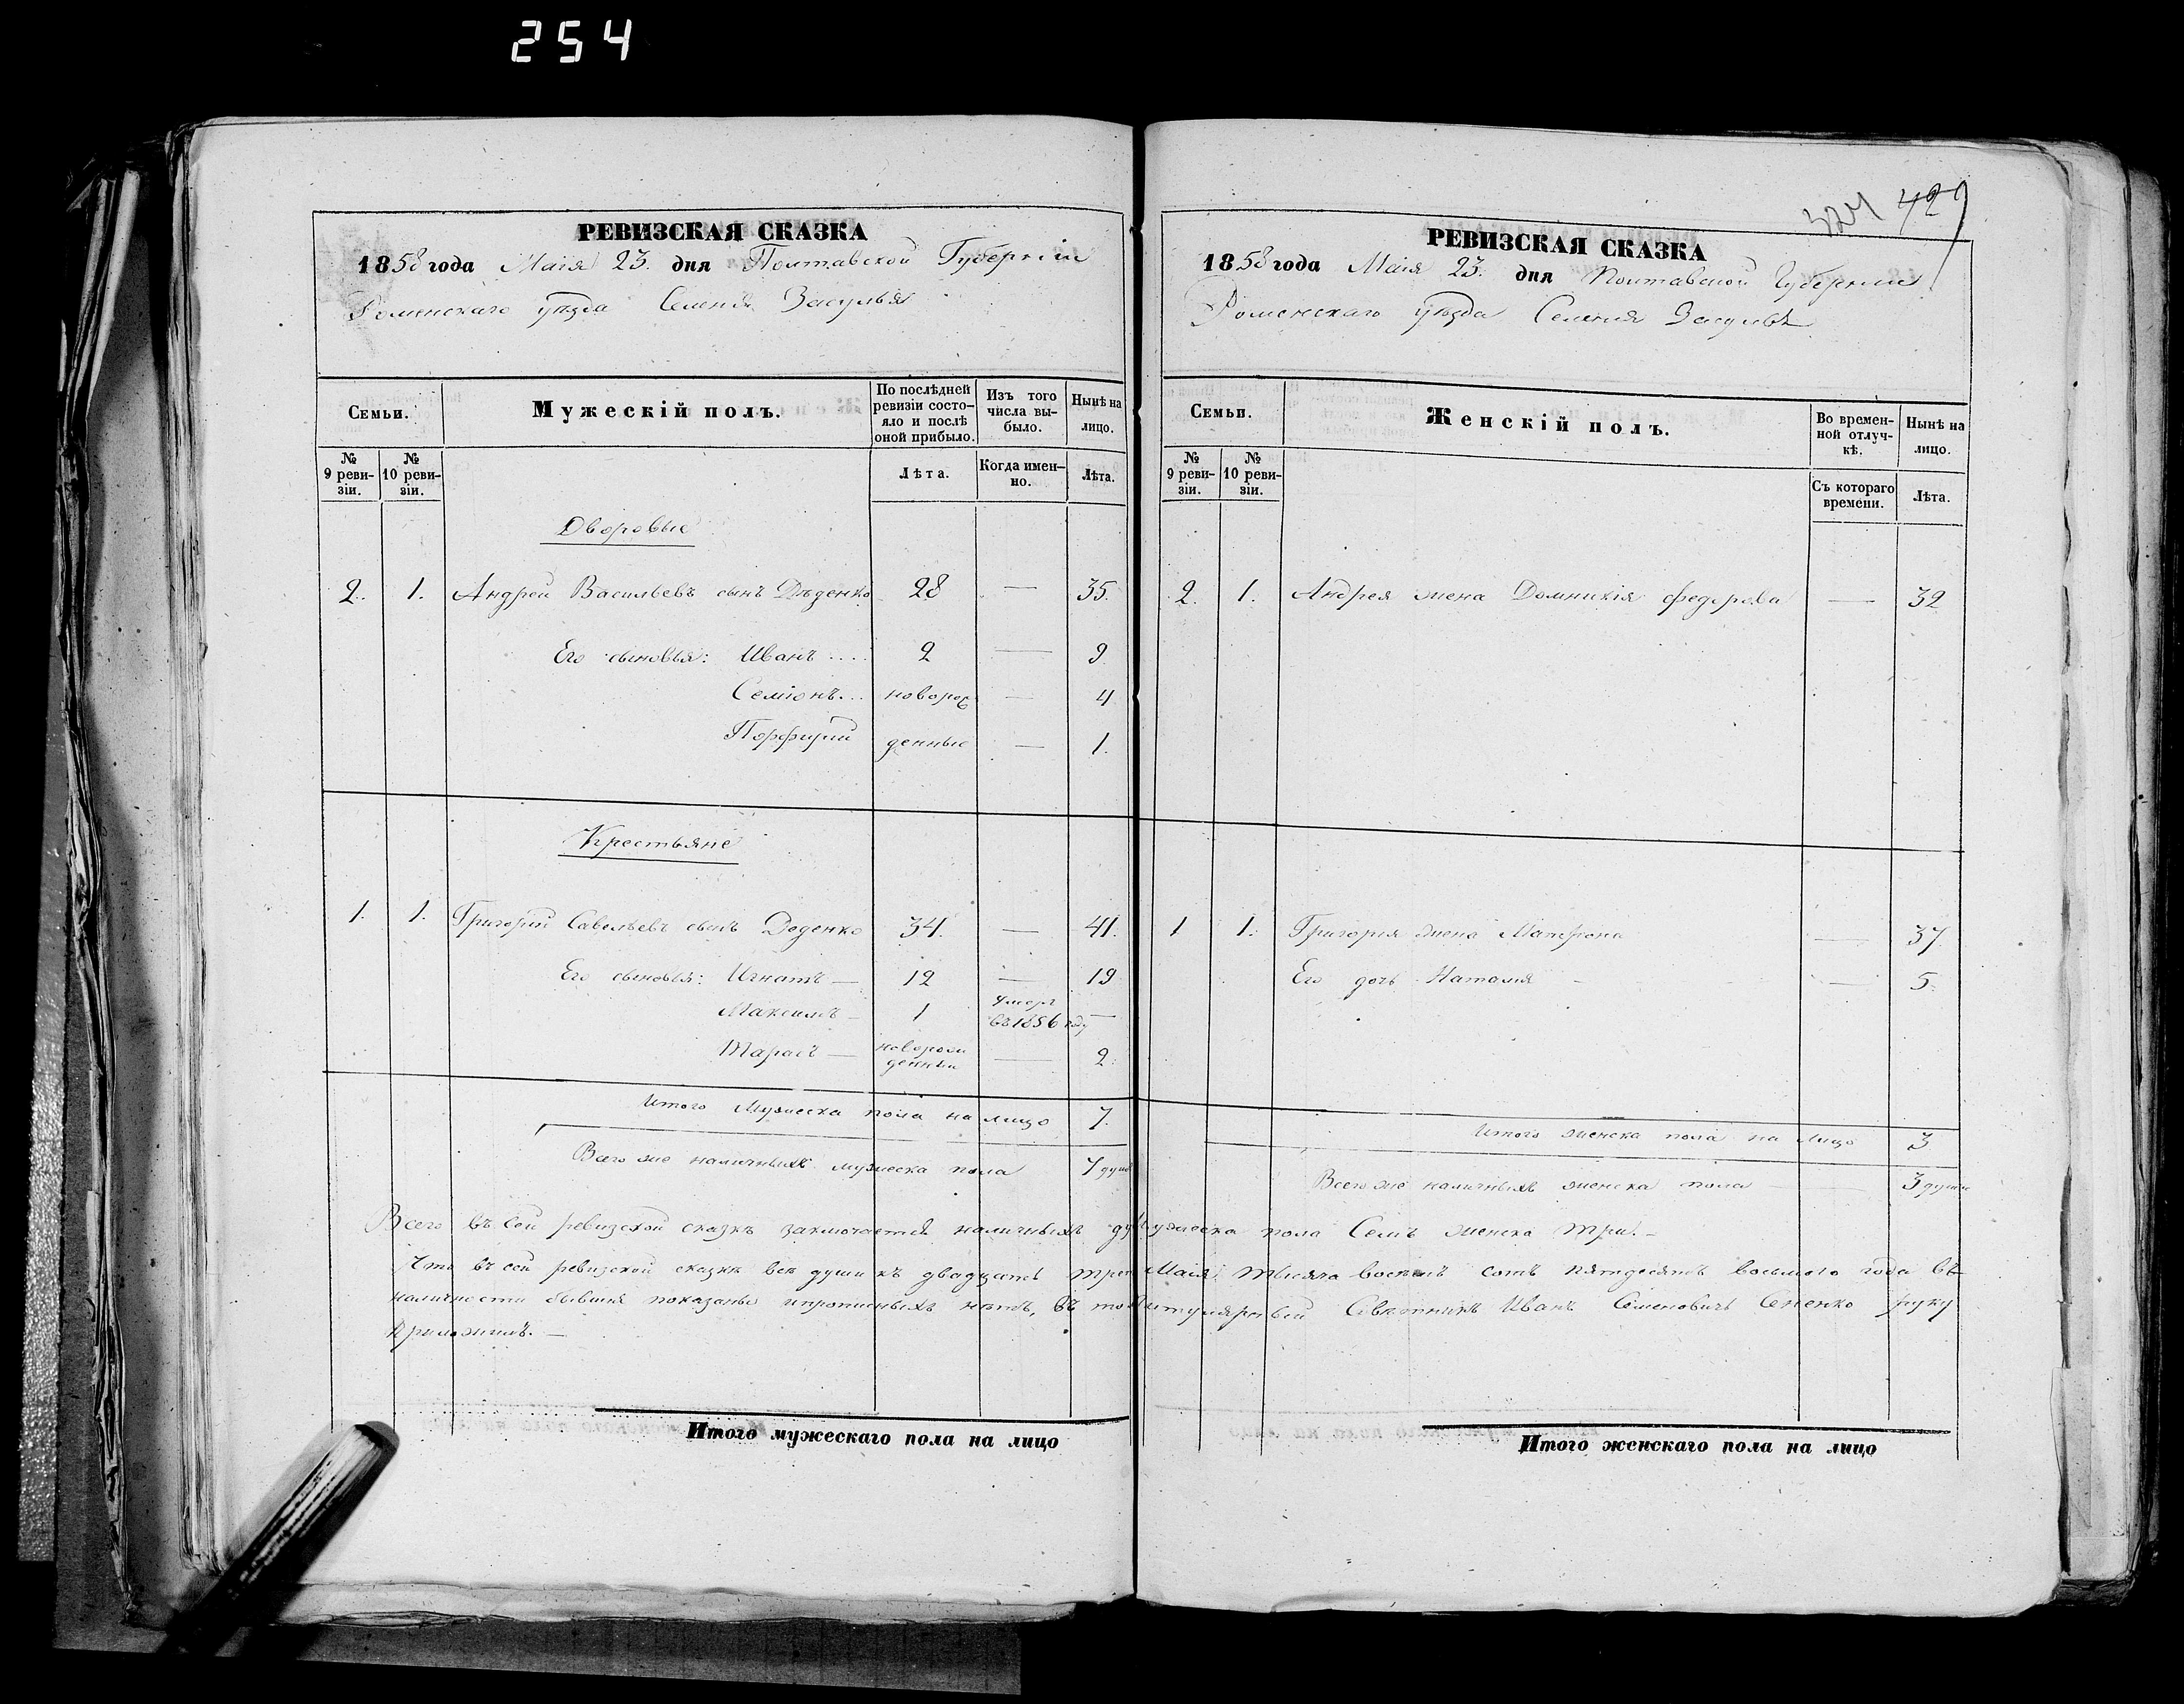 254
РЕВИЗСКАЯ СКАЗКА
1858 года Маія 23. дня Полтавской Губерніи
Роменскаго уѣзда Селенія Засулья
Семьи.
Мужескій полъ.
По послѣдней ревизіи состояло и послѣ оной прибыло.
Изъ того числа выбыло.
Нынѣ на лицо.
№ 9 ревизіи.
№ 10 ревизіи.
Лѣта.
Когда именно.
Лѣта.
Дворовые
2. 1. Андрей Васильевъ сынъ Дѣденко 28 — 35.
Его сыновья: Иванъ .... 2 — 9
Семіонъ... новорож — 4
Порфирій денные — 1.
Крестьяне
1. 1. Григорій Савельевъ сынъ Деденко 34. — 41.
Его сыновья: Игнатъ — 12 — 19
Максимъ — 1 умеръ въ 1856 году —
Тарасъ — новорож денный — 2.
Итого Мужеска пола на лицо 7.
Всего же наличныхъ мужеска пола 7 душъ
324 429
РЕВИЗСКАЯ СКАЗКА
1858 года Маія 23. дня Полтавской Губерніи
Роменскаго уѣзда Селенія Засулья
Семьи.
Женскій полъ.
Во временной отлучкѣ.
Нынѣ на лицо.
№ 9 ревизіи.
№ 10 ревизіи.
Съ котораго времени.
Лѣта.
2. 1. Андрея жена Домникія Федорова — 32
1 1. Григорія жена Матрона — 37
Его дочь Наталія — 5.
Итого женска пола на лицо 3
Всего же наличныхъ женска пола — 3 души
Всего въ сей ревизской сказкѣ заключается наличныхъ мужеска пола Семь женска три. —
Что въ сей ревизской сказкѣ всѣ души къ двадцать трет Маія тысяча восемь сотъ пятдесятъ восьмого года въ
наличности бывшія показаны и прописныхъ нѣтъ, въ томъ титулярный Совѣтникъ Иванъ Семеновичъ Сененко руку
приложилъ. —
Итого мужескаго пола на лицо
Итого женскаго пола на лицо